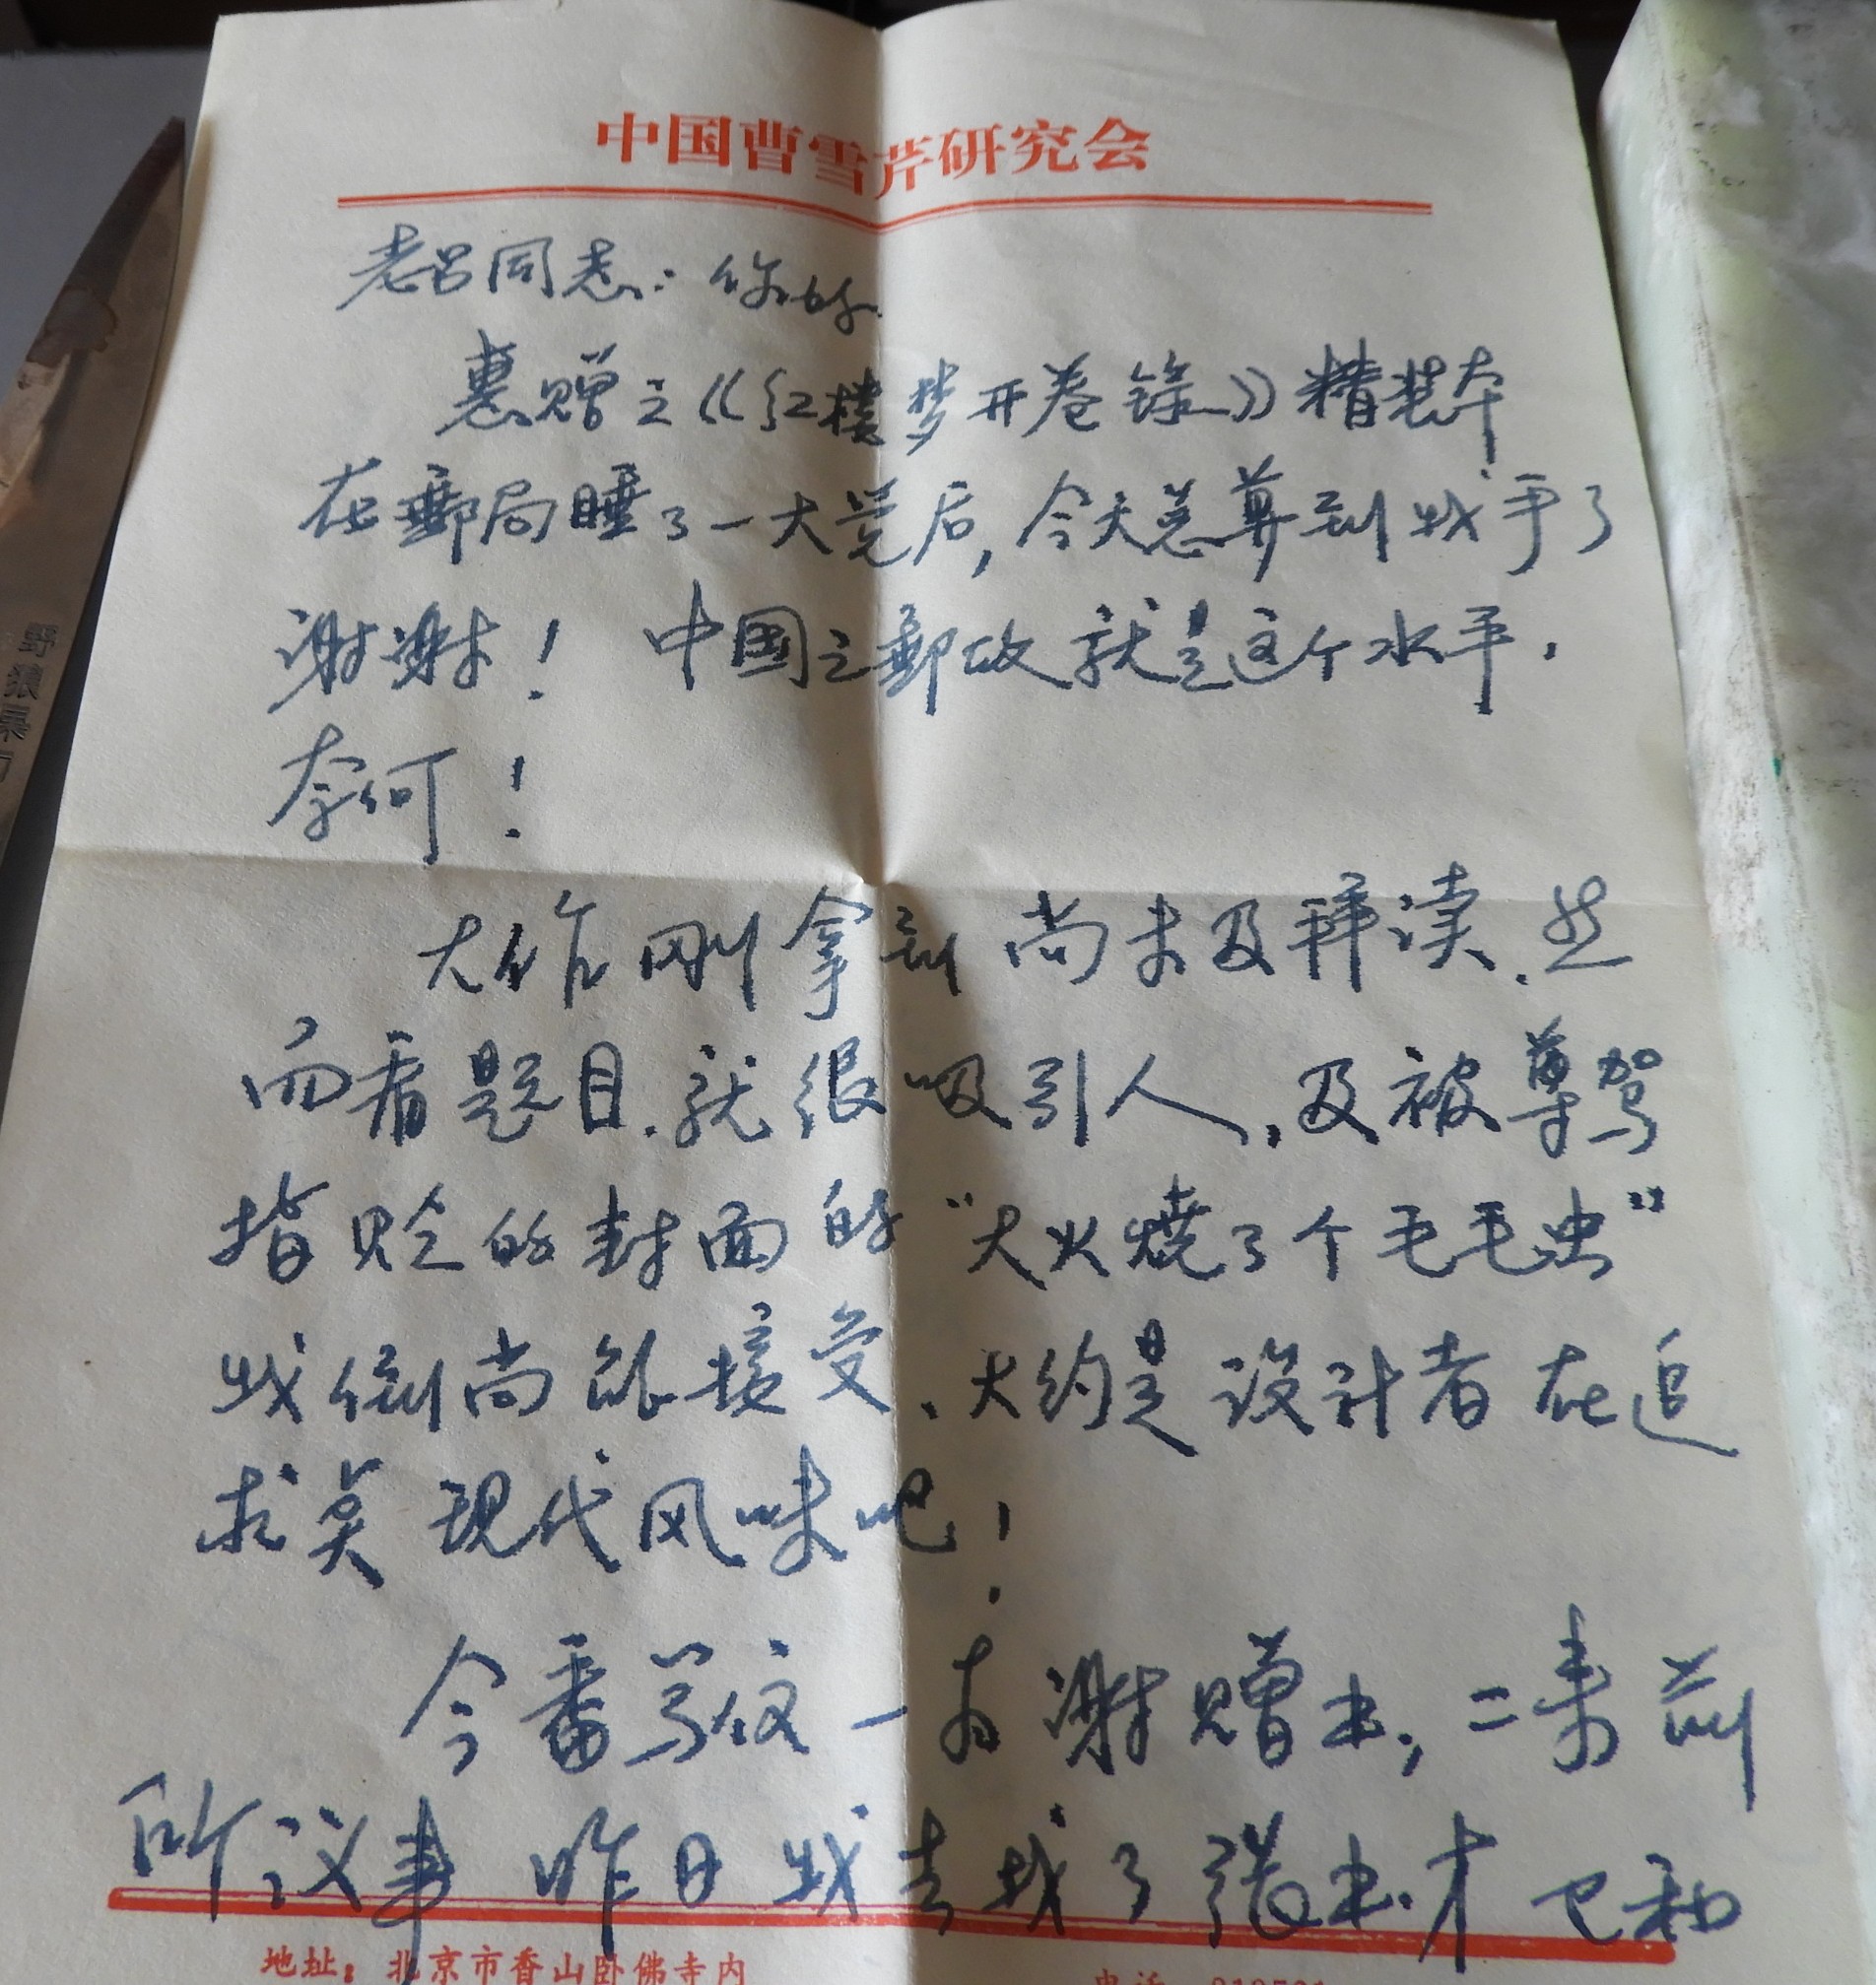 中国曹雪芹研究会
老吕同志：你好
惠赠之《红楼梦开卷录》精装本
在郵局睡了一大觉后，今天总算到我手了
谢谢！ 中国之郵政就是这个水平，
奈何！
大作刚拿到 尚未及拜读，然
而看题目，就很吸引人，及被尊驾
指贬的封面的“大火燒了个毛毛虫”
我倒尚能接受，大约是设计者在追
求美 现代风味吧！
今番写仅一为谢赠书，二来前
所议事 昨日我去找了張书才 已和
地址：北京市香山卧佛寺内
电话
野狼